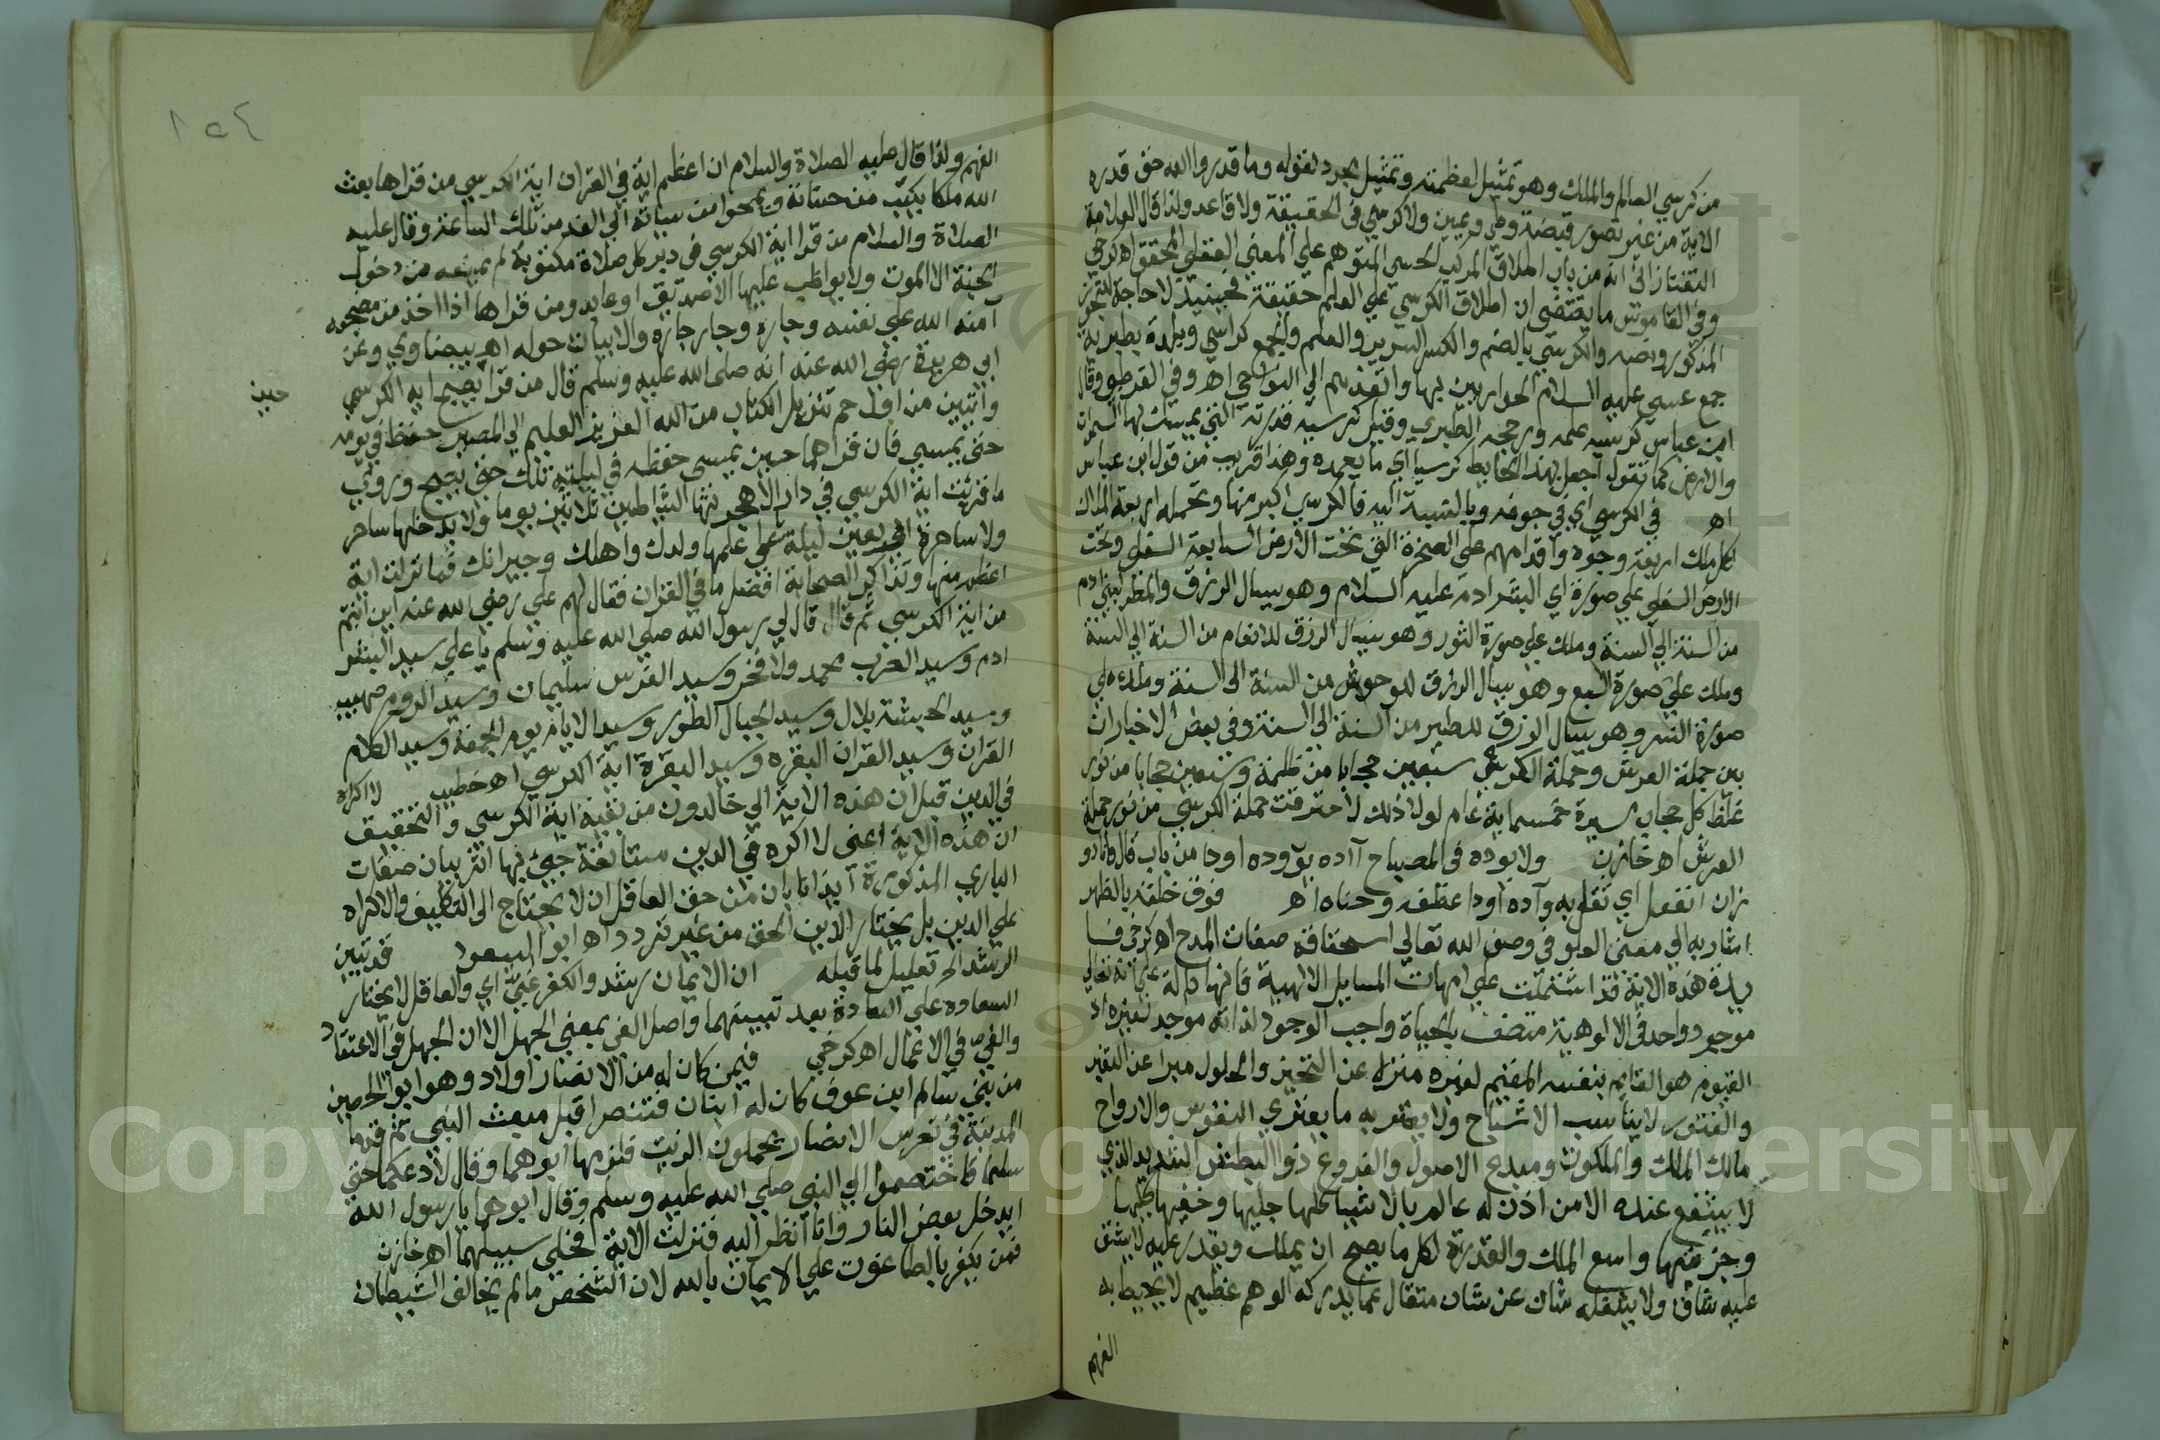 من كرسي العالم والملك وهو تمثيل لعظمته وتمثيل مجرد لقوله وما قدروا الله حق قدره
الاية من غير تصور قبضة وطي ويمين ولا كرسي في الحقيقة ولا قاعد ولذا قال العلامة
التفتازاني انه من باب اطلاق المركب الحسي المتوهم علي المعني العقلي المحقق اهـ كرخي
وفي القاموس ما يقتضي ان اطلاق الكرسي علي العلم حقيقة فحينيذ لا حاجة
المذكور ونصه والكرسي بالضم والكسر السرير والعلم والجمع كراسي وبلدة بطبرية
جمع عيسي عليه السلام الحواريين بها وانفذهم الي النواحي اهـ وفي القرطبي وقال
ابن عباس كرسيه علمه ورجحه الطبري وقيل كرسيه قدرته التي يمسك بها السموات
والارض كما تقول اجعل لهذا الحايط كرسيا اي ما يعمده وهذا قريب من قول ابن عباس
اهـ في الكرسي اي في جوفه وبالنسبة اليه فالكرسي اكبر منها وتحمله اربعة املاك
لكل ملك اربعة وجوه واقدامهم علي الصخرة التي تحت الارض السابعة السفلي وتحت
الارض السفلي علي صورة ابي البشر ادم عليه السلام وهو يسال الرزق والمطر لبني ادم
من السنة الي السنة وملك علي صورة الثور وهو يسال الرزق للانعام من السنة الي السنة
وملك علي صورة السبع وهو يسال الرزق للوحوش من السنة الي السنة وملك علي
صورة النسر وهو يسال الرزق للطير من السنة الي السنة وفي بعض الاخبار ان
بين حملة العرش وحملة الكرسي سبعين حجابا من ظلمة وسبعين حجابا من نور
غلظ كل حجاب مسيرة خمسماية عام لولا ذلك لاحترقت حملة الكرسي من نور حملة
العرش اهـ خازن ولا يوده في المصباح آده يؤوده اودا من باب قال فاناد
بزان انفعل اي ثقل به وآده اودا عطفه وحناه اهـ فوق خلقه بالقهر
اشار به الي معني العلو في وصف الله تعالي استحقاقه صفات المدح اهـ كرخي
هذه الاية قد اشتملت علي امهات المسايل الالهية فانها دالة علي انه تعالي
موجود واحد في الالوهية متصف بالحياة واجب الوجود لذاته موجد لغيره اذ
القيوم هو القايم بنفسه المقيم لغيره منزه عن التحيز والحلول مبرا عن التغير
والفتور لا يناسب الاشباح ولا يعتريه ما يعتري النفوس والارواح
مالك الملك والملكوت ومبدع الاصول والفروع ذو البطش الشديد الذي
لا يشفع عنده الا من اذن له عالم بالاشيا كلها جليها وخفيها كليها
وجزئيها واسع الملك والقدرة لكل ما يصح ان يملك ويقدر عليه لا يشق
عليه شاق ولا يشغله شان عن شان متعال عما يدركه الوهم عظيم لا يحيط به
الفهم
١٥٤
الفهم ولذا قال عليه الصلاة والسلام ان اعظم اية في القران اية الكرسي من قراها بعث
الله ملكا يكتب من حسناته ويمحوا من سياته الي الغد من تلك الساعة وقال عليه
الصلاة والسلام من قرا اية الكرسي في دبر كل صلاة مكتوبة لم يمنعه من دخول
الجنة الا الموت ولا يواظب عليها الا صديق او عابد ومن قراها اذا اخذ من مضجعه
آمنه الله علي نفسه وجاره وجار جاره والابيات حوله اهـ بيضاوي وعن
ابي هريرة رضي الله عنه انه صلي الله عليه وسلم قال من قرا اية الكرسي
حين
وآيتين من اول حم تنزيل الكتاب من الله العزيز العليم الي المصير حفظ في يومه
حتي يمسي فان قراهما حين يمسي حفظه في ليلته تلك حتي يصبح وروي
ما قرئت اية الكرسي في دار الا هجرتها الشياطين ثلاثين يوما ولا يدخلها ساحر
ولا ساحرة اربعين ليلة يا علي علمها ولدك واهلك وجيرانك فما نزلت اية
اعظم منها وتذاكر الصحابة افضل ما في القران فقال لهم علي رضي الله عنه اين انتم
من اية الكرسي ثم قال قال لي رسول الله صلي الله عليه وسلم يا علي سيد البشر
ادم وسيد العرب محمد ولا فخر وسيد الفرس سليمان وسيد الروم صهيب
وسيد الحبشة بلال وسيد الجبال الطور وسيد الايام يوم الجمعة وسيد الكلام
القران وسيد القران البقره وسيد البقرة اية الكرسي اهـ خطيب لا اكراه
في الدين قيل ان هذه الاية الي خالدون من بقية اية الكرسي والتحقيق
ان هذه الاية اعني لا اكره في الدين مستانفة جيئ بها اثر بيان صفات
الباري المذكورة ايذانا بان من حق العاقل ان لا يحتاج الي التكليف والاكراه
علي الدين بل يختار الدين الحق من غير تردد اهـ ابو السعود قد تبين
الرشد الخ تعليل لما قبله ان الايمان رشد والكفر غي اي والعاقل لا يختار
السعاده علي الشقاوة بعد تبينهما واصل الغي بمعني الجهل الا ان الجهل في الاعتقاد
والغي في الاعمال اهـ كرخي فيمن كان له من الانصار اولاد وهو ابو الحصين
من بني سالم ابن عوف كان له ابنان فتنصرا قبل مبعث النبي ثم قدما
المدينة في نفر من الانصار يحملون الزيت فلزمهما ابوهما وقال لا ادعكما حتي
تسلما فاختصموا الي النبي صلي الله عليه وسلم وقال ابوهما يا رسول الله
ايدخل بعضي النار وانا انظر اليه فنزلت الاية فخلي سبيلهما اهـ خازن
فمن يكفر بالطاغوت علي الايمان بالله لان الشخص ما لم يخالف الشيطان
Copyright © King Saud University